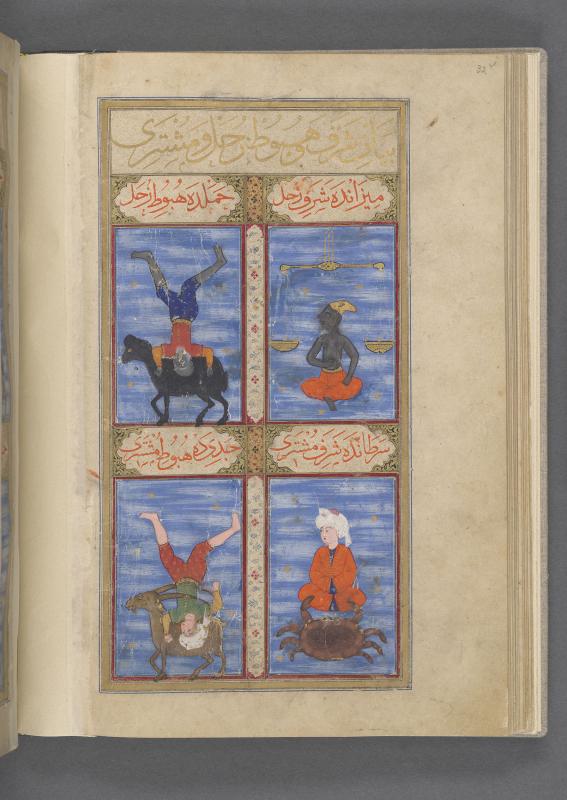 32
بیان شرف و هبوط زحل و مشتری
میزانده شرف زحل
حملده هبوط زحل
سرطانده شرف مشتری
جدیده هبوط مشتری